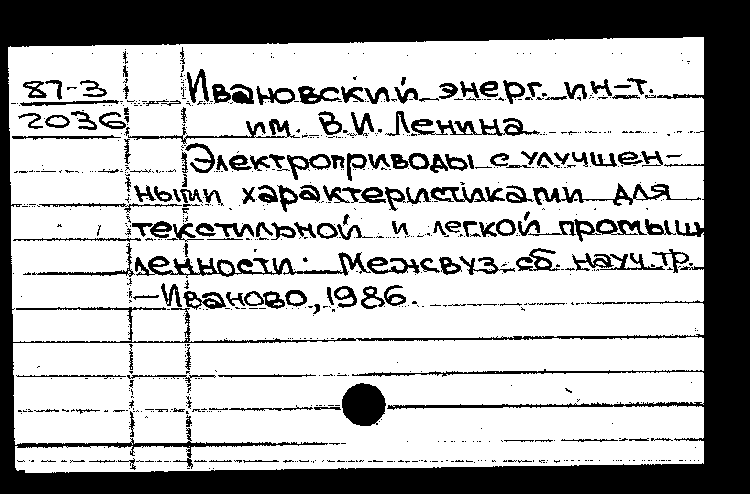 87-3 Ивановский энерг. ин-т.
2036 им. В.И. Ленина
Электроприводы с улучшен-
ными характеристиками для
текстильной и легкой промыш
ленности: Межвуз. сб. науч. тр.
—Иваново, 1986.